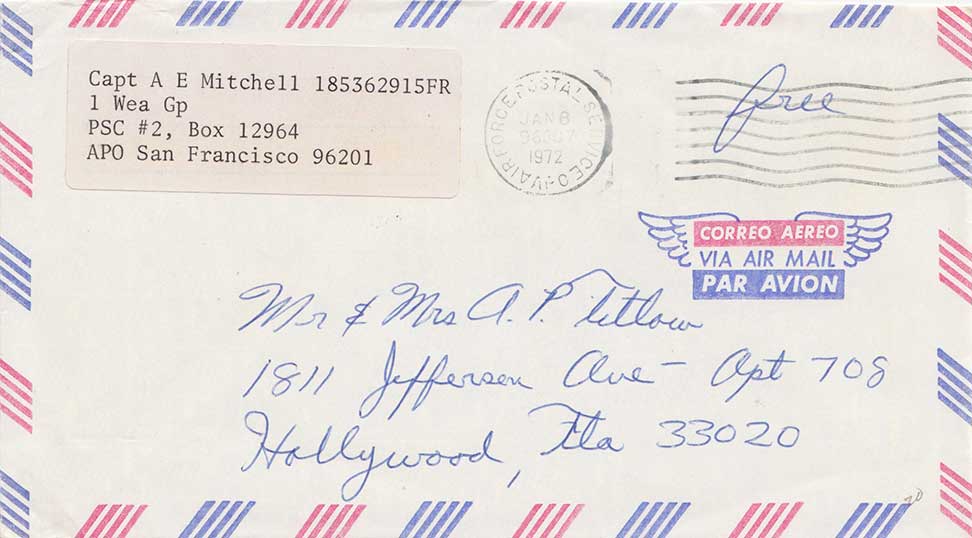 Capt A E Mitchell 185362915FR
1 Wea Gp
PSC #2, Box 12964
APO San Francisco 96201
AIR FORCE POSTAL SERVICE
JAN 8
1972
free
CORREO AEREO
VIA AIR MAIL
PAR AVION
Mr & Mrs A. P. Titlow
1811 Jefferson Ave - Apt 708
Hollywood, Fla 33020
20